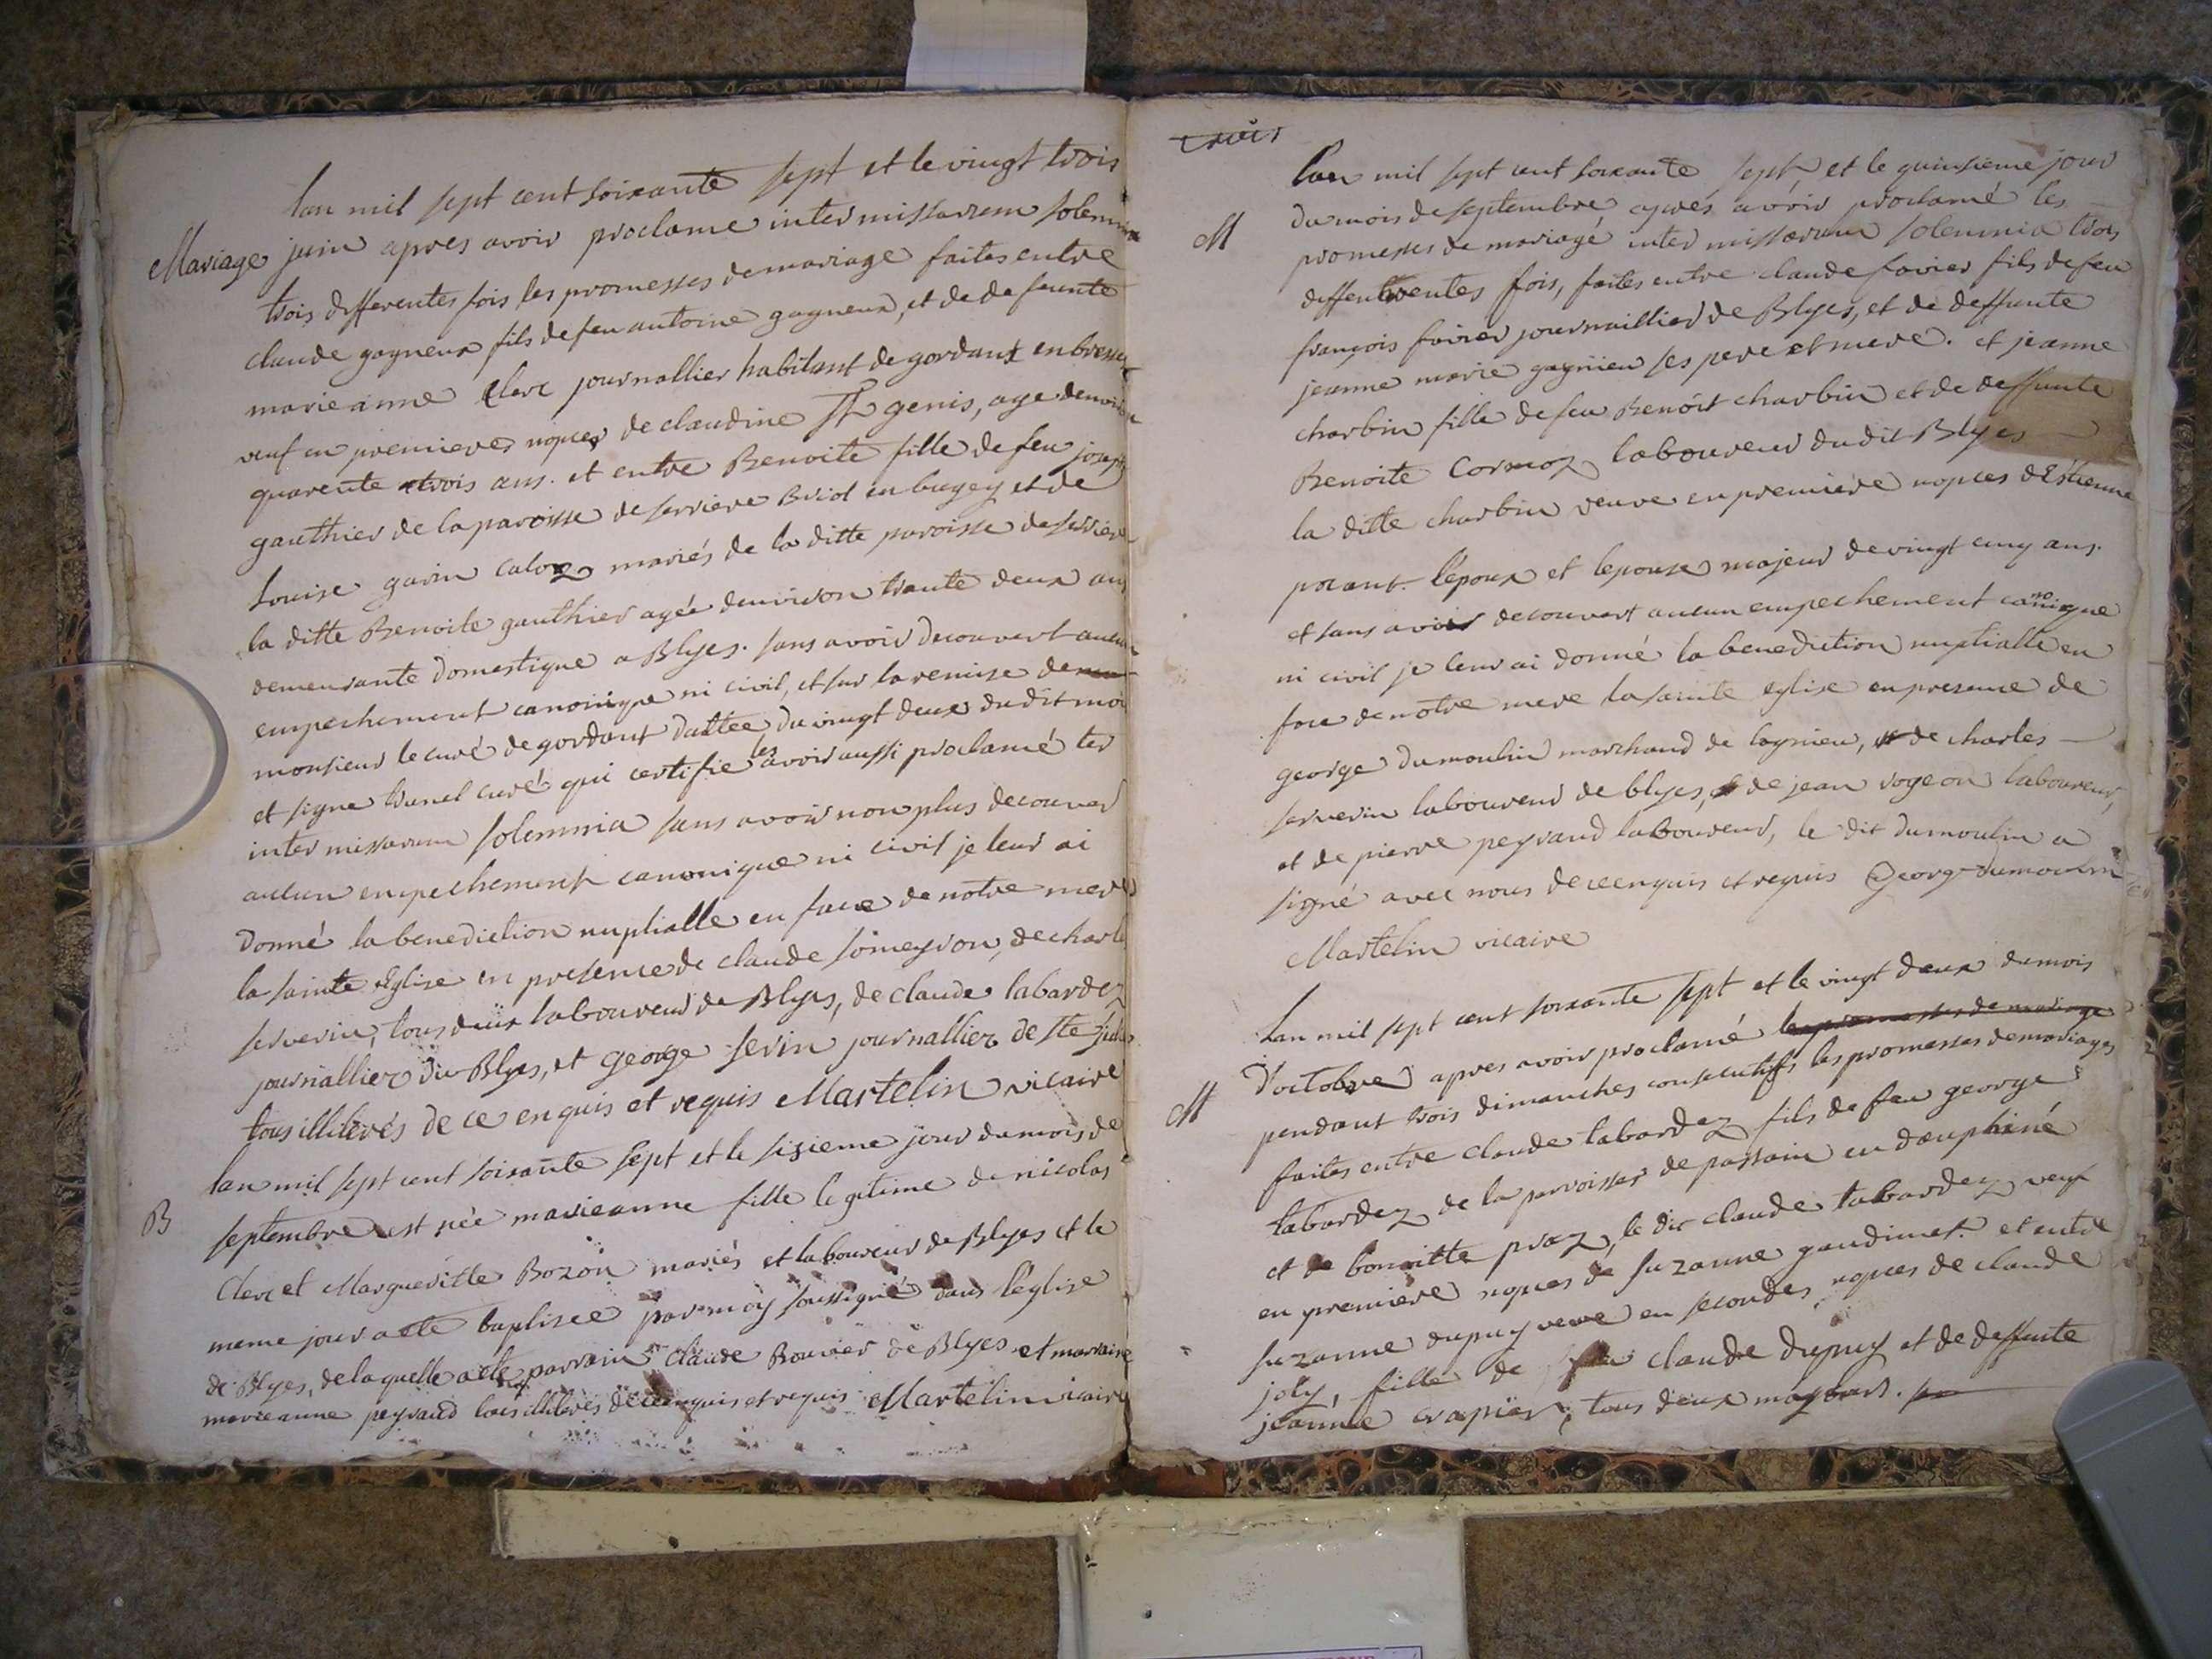 Mariage
lan mil sept cent soixante sept et le vingt trois
juin apres avoir proclame inter missarum solemnia
trois differentes fois les promesses de mariage faites entre
claude gagneux fils de feu antoine gagneux, et de defeunte
marieanne Clerc journallier habitant de gordant en bresse
veuf en premieres nopces de claudine St genis, age denviron
quarente trois ans. et entre Benoite fille de feu joseph
gauthier de la paroisse de serriere Briol en bugey et de
Louise gavin caloz mariés de la ditte paroisse de serriere
la ditte Benoite gauthier agée denviron trante deux ans
demeurante domestique a Blyes. sans avoir decouvert aucun
empechement canonique ni civil, et sur la remise de
monsieur le curé de gordant dattée du vingt deux dudit moi
et signe trunel curé qui certifie les avoir aussi proclamé ter
inter missarum solemnia sans avoir non plus decouver
aucun empechement canonique ni civil je leur ai
donné la benediction nuptialle en face de notre mere
la sainte Eglise en presence de claude someyson, de charle
serverin, tous deux laboureur de Blyes, de claude labardez
journallier de Blyes, et george serin journallier de ste julie
tous illiterés de ce enquis et requis Martelin vicaire
B
lan mil sept cent soixante sept et le sizieme jour du mois de
septembre est née marieanne fille legitime de nicolas
Clerc et Margueritte Bozon mariés et laboureur de Blyes et le
meme jour a ete baptisee par moy soussigné dans l'eglise
de Blyes, de laquelle a ete parrain claude Bouvier de Blyes et marraine
marieanne peyraud tous illiterés de ce enquis et requis Martelin vicaire
trois
M
Lan mil sept cent soixante sept, et le quinsieme jour
du mois de septembre apres avoir proclamé les
promesses de mariagé inter missarum solemnia trois
differentes fois, faites entre claude favier fils de feu
françois favier journaillier de Blyes, et de deffunte
jeanne marie gagnieu ses pere et mere. et jeanne
charbin fille de feu Benoit charbin et de deffunte
Benoite Cormoz laboureur dudit Blyes
la ditte charbin veuve en premiere nopces d'Estienne
pocant. l'epoux et lepouse majeur de vingt cinq ans.
et sans avoir decouvert aucun empechement canonique
ni civil je leur ai donné la benediction nuptialle en
face de notre mere la sainte eglise en presence de
george dumoulin marchand de lagnieu, de charles
serverin laboureur de blyes, de jean rogeon laboureur,
et de pierre peyraud laboureur, le dit dumoulin a
signé avec nous de ce enquis et requis George dumoulin
Martelin vicaire
M
Lan mil sept cent soixante sept et le vingt deux du mois
d'octobre apres avoir proclamé les promesses de mariage
pendant trois dimanches consecutiffs les promesses de mariages
faites entre claude labardez fils de feu george
labardez de la parroisse de passain en dauphiné
et de bonoitte praz, le dit claude labardez veuf
en premiere nopces de suzanne gaudimet. et entre
suzanne dupuy veuve en secondes nopces de claude
joly, fille de feu claude dupuy et de deffunte
jeanne crapier, tous deux majeurs.